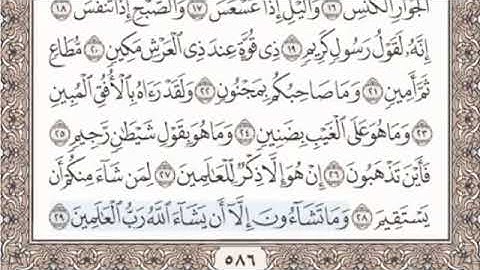 ٱلۡجَوَارِ ٱلۡكُنَّسِ ۝١٦ وَٱلَّيۡلِ إِذَا عَسۡعَسَ ۝١٧ وَٱلصُّبۡحِ إِذَا تَنَفَّسَ ۝١٨
إِنَّهُۥ لَقَوۡلُ رَسُولٖ كَرِيمٖ ۝١٩ ذِي قُوَّةٍ عِندَ ذِي ٱلۡعَرۡشِ مَكِينٖ ۝٢٠ مُّطَاعٖ
ثَمَّ أَمِينٖ ۝٢١ وَمَا صَاحِبُكُم بِمَجۡنُونٖ ۝٢٢ وَلَقَدۡ رَءَاهُ بِٱلۡأُفُقِ ٱلۡمُبِينِ
۝٢٣ وَمَا هُوَ عَلَى ٱلۡغَيۡبِ بِضَنِينٖ ۝٢٤ وَمَا هُوَ بِقَوۡلِ شَيۡطَٰنٖ رَّجِيمٖ ۝٢٥
فَأَيۡنَ تَذۡهَبُونَ ۝٢٦ إِنۡ هُوَ إِلَّا ذِكۡرٞ لِّلۡعَٰلَمِينَ ۝٢٧ لِمَن شَآءَ مِنكُمۡ أَن
يَسۡتَقِيمَ ۝٢٨ وَمَا تَشَآءُونَ إِلَّآ أَن يَشَآءَ ٱللَّهُ رَبُّ ٱلۡعَٰلَمِينَ ۝٢٩
٥٨٦